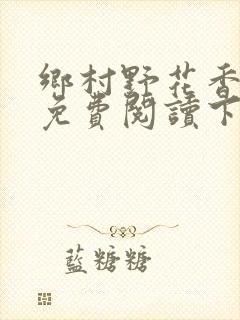 鄉村野花香
免費閱讀下
藍糖糖